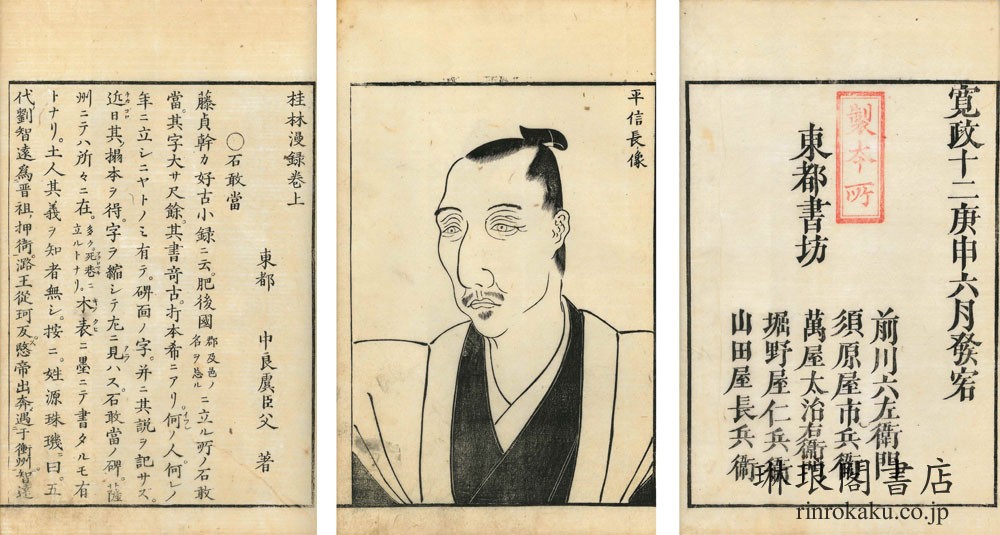 桂林漫録巻上
東都 中良虞臣父 著
○石敢當
藤貞幹カ好古小録ニ云。肥後國郡及邑ノ名ヲ忘ルニ立ル所ノ石敢
當。其字大サ尺餘。其書竒古。打本希ニアリ。何ノ人何レノ
年ニ立シニヤトノミ有テ。碑面ノ字。并ニ其説ヲ記サズ。
近日其搨本ヲ得。字ヲ縮シテ左ニ見ハス。石敢當ノ碑。薩
州ニテハ所々ニ在。多ク死巷ニ立ルトナリ。木表ニ墨ニテ書タルモ有
トナリ。土人其義ヲ知者無シ。按ニ。姓源珠璣ニ曰。五
代劉智遠為晋祖押衙。潞王從珂反。愍帝出奔。遇于衛州。智遠
平信長像
寛政十二庚申六月發兌
製本所
東都書坊
前川六左衛門
須原屋市兵衞
萬屋太治右衞門
堀野屋仁兵衞
山田屋長兵衞
琳琅閣書店
rinrokaku.co.jp